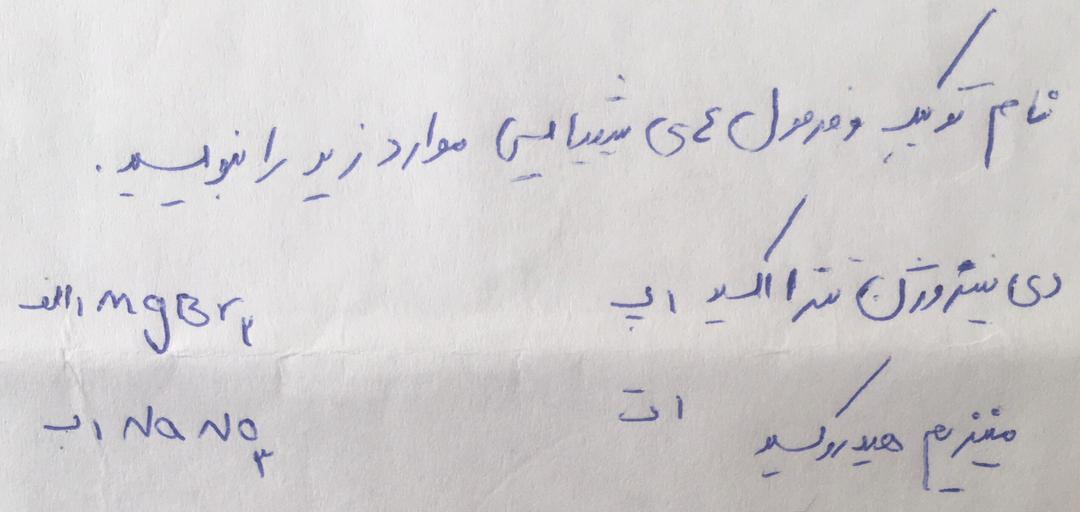 نام ترکیب و فرمول های شیمیایی موارد زیر را بنویسید.
الف) MgBr۲ پ) دی نیتروژن تترا اکسید
ب) NaNo۳ ت) منیزیم هیدروکسید